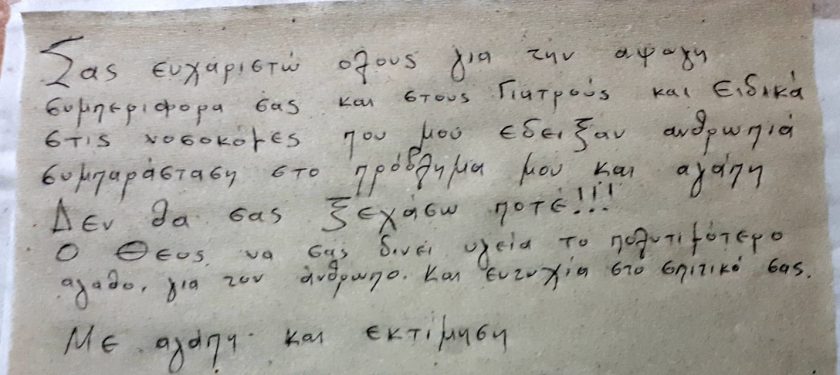 Σας ευχαριστώ όλους για την αψογη
συμπεριφορα σας και στους Γιατρούς και Ειδικά
στις νοσοκόμες που μου εδειξαν ανθρωπιά
συμπαράσταση στο πρόβλημα μου και αγάπη
Δεν θα σας ξεχάσω ποτέ!!!
Ο Θεος να σας δινει υγεία το πολυτιμότερο
αγαθο, για τον άνθρωπο. και ευτυχία στο σπιτικό σας.
Με αγάπη και εκτίμηση